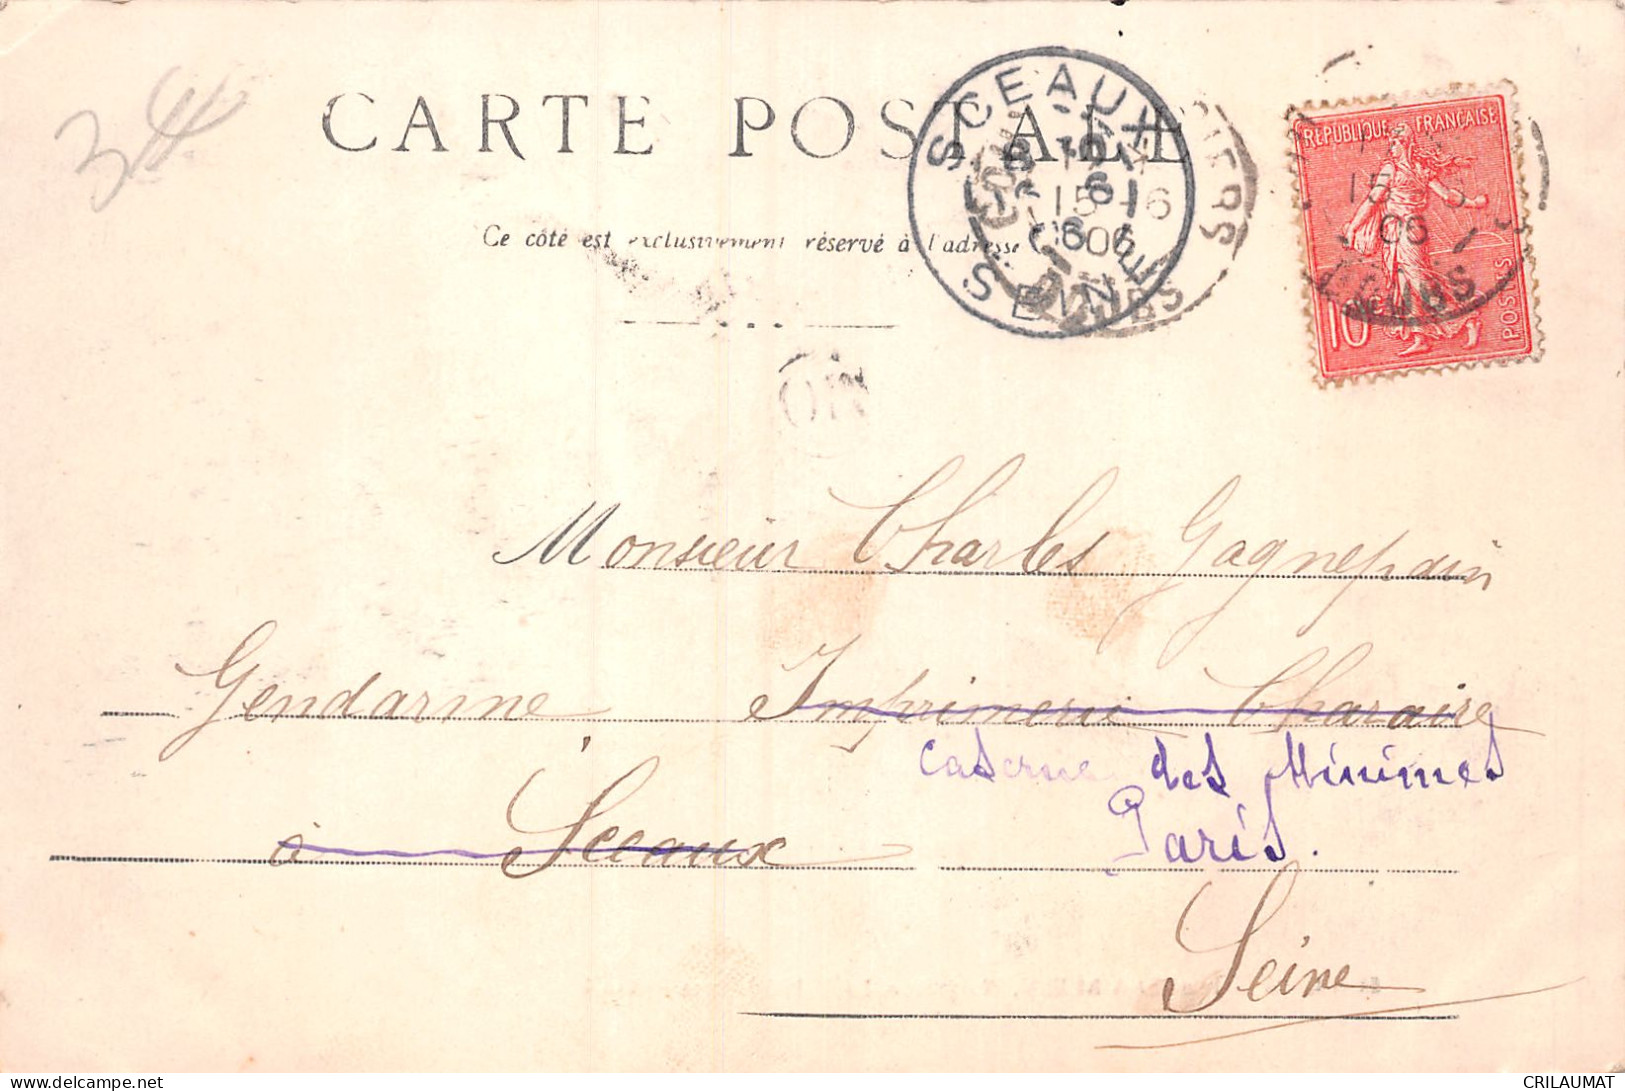 34
CARTE POSTALE
Ce côté est exclusivement réservé à l'adresse
SCEAUX
SEINE
15 -6
06
REPUBLIQUE FRANÇAISE
10c
POSTES
15
06
Monsieur Charles Gagnepain
Gendarme Imprimerie Charaire
Caserne des Minimes
à Sceaux
Paris.
Seine
delcampe.net
CRILAUMAT